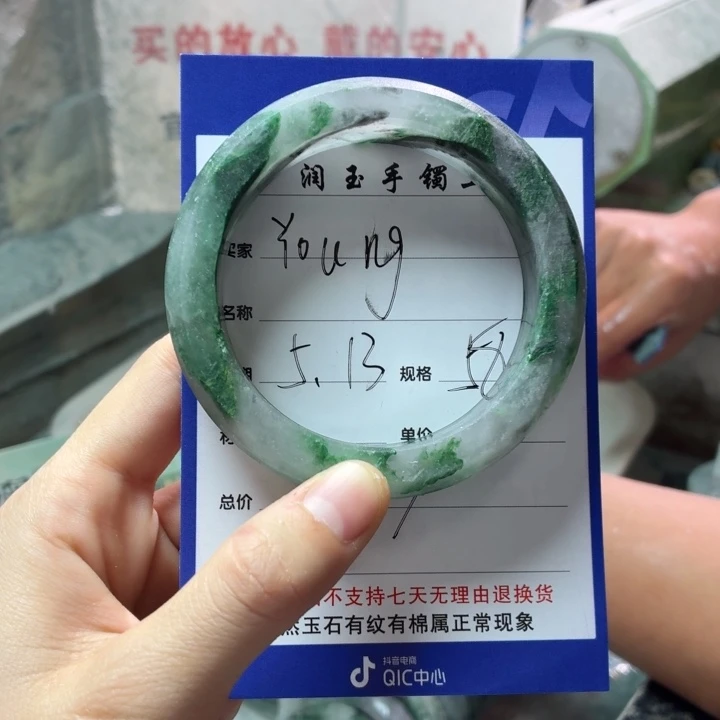 买的放心 戴的安心
润玉手镯
家 Young
名称
期 5.13 规格 58
单价
总价
不支持七天无理由退换货
然玉石有纹有棉属正常现象
抖音电商
QIC中心